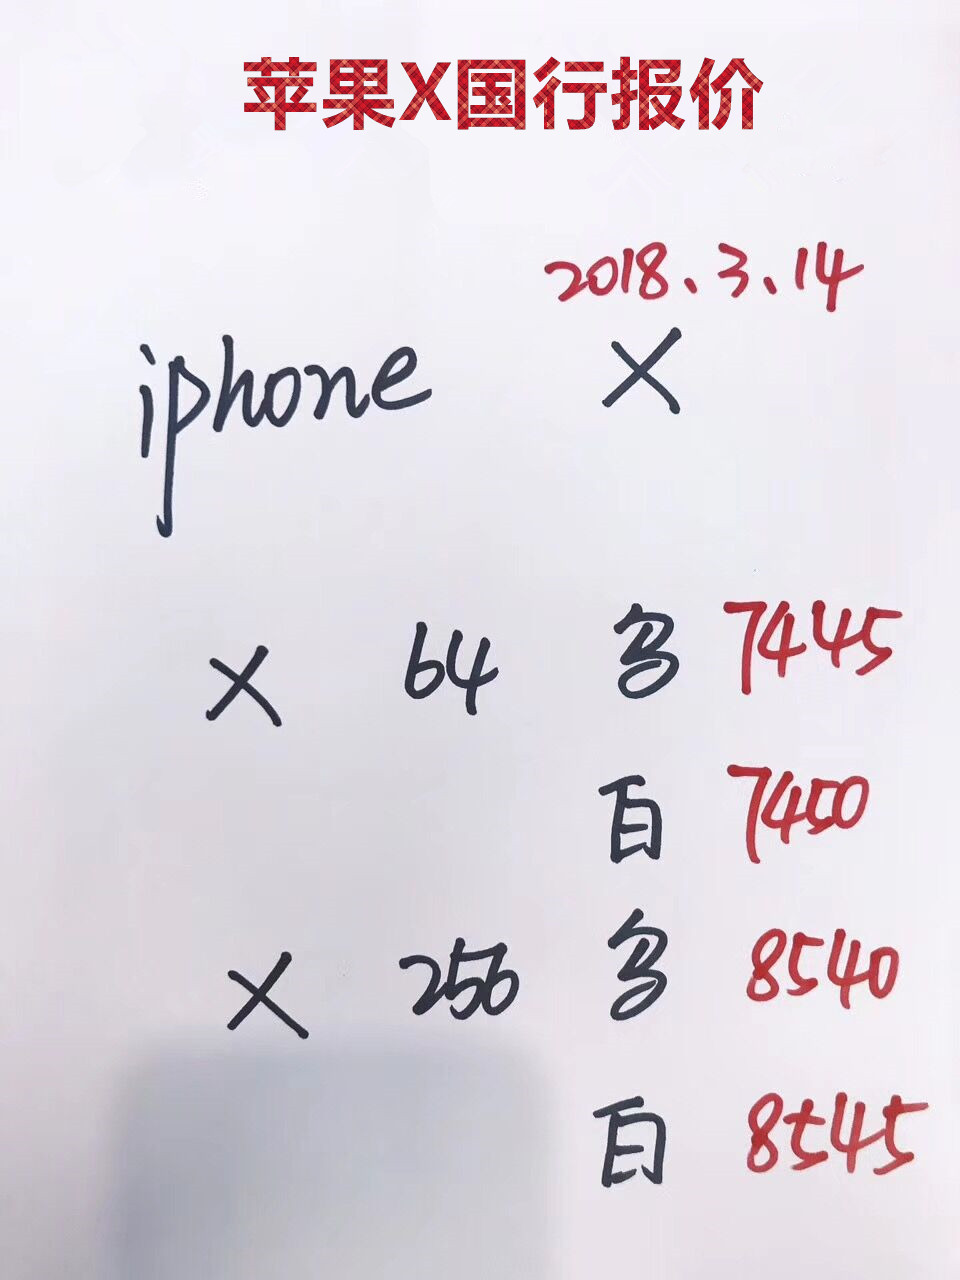 苹果X国行报价
2018.3.14
iphone X
X 64 多 7445
百 7450
X 256 多 8540
百 8545